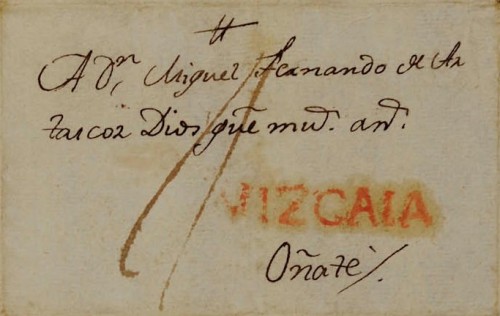 A Dn, Miguel Fernando de Az
tarcoz Dios gue mu.s an.s
VIZCAIA
Oñate